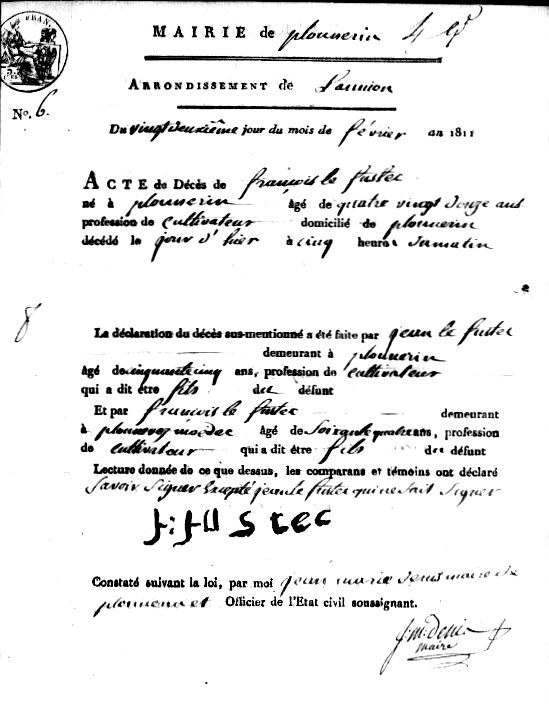 MAIRIE de plounerin
ARRONDISSEMENT de Lannion
No. 6.
Du vingt deuxième jour du mois de février an 1811
ACTE de Décès de françois le fustec
né à plounerin âgé de quatre vingt douze ans
profession de cultivateur domicilié de plounerin
décédé le jour d'hier à cinq heures du matin
8
La déclaration du décès sus-mentionné a été faite par jean le fustec
demeurant à plounerin
âgé de cinquante cinq ans, profession de cultivateur
qui a dit être fils du défunt
Et par françois le fustec demeurant
à plounevez moedec âgé de soixante quatre ans, profession
de cultivateur qui a dit être fils du défunt
Lecture donnée de ce que dessus, les comparans et témoins ont déclaré
savoir signer excepté jean le fustec qui ne sait signer
f: fustec
Constaté suivant la loi, par moi jean marie denis maire de
plounerin et Officier de l'Etat civil soussignant.
j: m: denis
maire